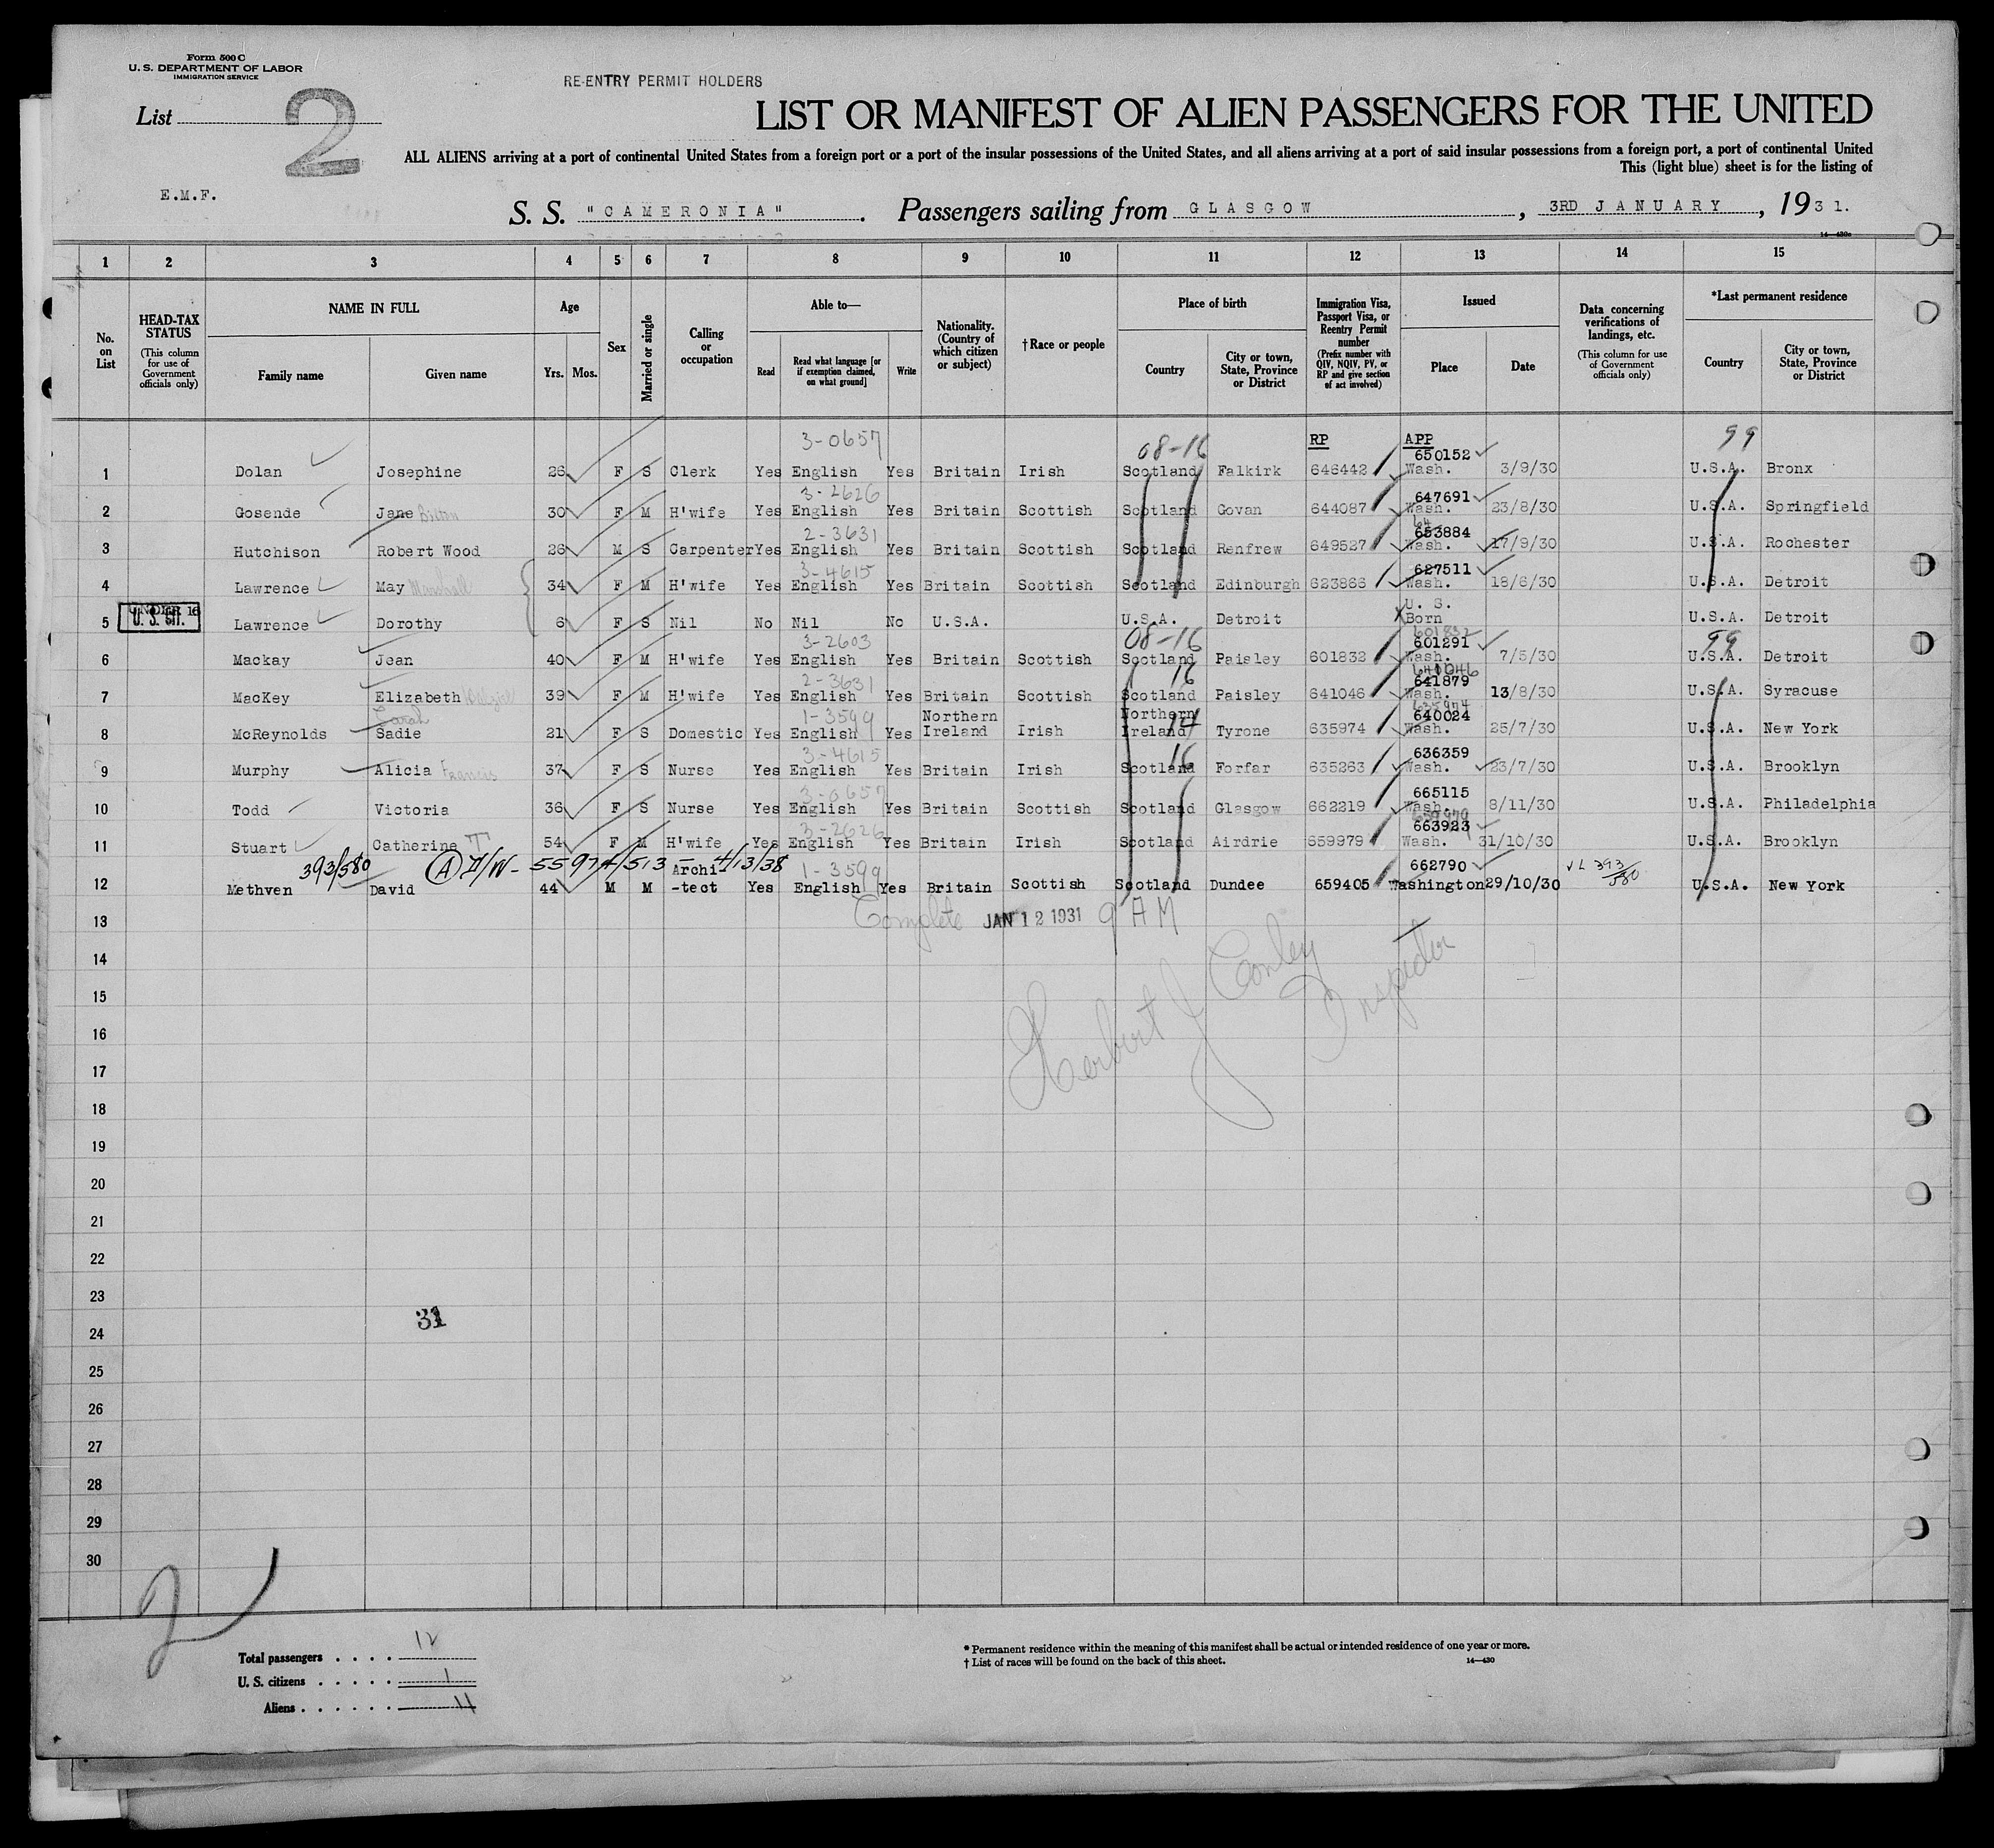 Form 500 C
U. S. DEPARTMENT OF LABOR
IMMIGRATION SERVICE
RE-ENTRY PERMIT HOLDERS
List 2
LIST OR MANIFEST OF ALIEN PASSENGERS FOR THE UNITED
ALL ALIENS arriving at a port of continental United States from a foreign port or a port of the insular possessions of the United States, and all aliens arriving at a port of said insular possessions from a foreign port, a port of continental United
This (light blue) sheet is for the listing of
E.M.F.
S. S. "CAMERONIA" . Passengers sailing from GLASGOW , 3RD JANUARY , 1931.
14—430c
1 2 3 4 5 6 7 8 9 10 11 12 13 14 15
No. on List
HEAD-TAX STATUS (This column for use of Government officials only)
NAME IN FULL Family name Given name
Age Yrs. Mos.
Sex
Married or single
Calling or occupation
Able to— Read Read what language [or if exemption claimed, on what ground] Write
Nationality. (Country of which citizen or subject)
†Race or people
Place of birth Country City or town, State, Province or District
Immigration Visa, Passport Visa, or Reentry Permit number (Prefix number with QIV, NQIV, PV, or RP and give section of act involved)
Issued Place Date
Data concerning verifications of landings, etc. (This column for use of Government officials only)
*Last permanent residence Country City or town, State, Province or District
3-0657 08-16 RP APP 99
650152
1 Dolan Josephine 26 F S Clerk Yes English Yes Britain Irish Scotland Falkirk 646442 Wash. 3/9/30 U.S.A. Bronx
3-2626 647691
2 Gosende Jane 30 F M H'wife Yes English Yes Britain Scottish Scotland Govan 644087 Wash. 23/8/30 U.S.A. Springfield
2-3631 653884
3 Hutchison Robert Wood 26 M S Carpenter Yes English Yes Britain Scottish Scotland Renfrew 649527 Wash. 17/9/30 U.S.A. Rochester
3-4615 627511
4 Lawrence May Marshall 34 F M H'wife Yes English Yes Britain Scottish Scotland Edinburgh 623866 Wash. 18/6/30 U.S.A. Detroit
UNDER 16 U. S.
5 U. S. CIT. Lawrence Dorothy 6 F S Nil No Nil No U.S.A. U.S.A. Detroit Born U.S.A. Detroit
3-2603 08-16 601832 601291 99
6 Mackay Jean 40 F M H'wife Yes English Yes Britain Scottish Scotland Paisley 601832 Wash. 7/5/30 U.S.A. Detroit
2-3631 16 641046 641879
7 MacKey Elizabeth 39 F M H'wife Yes English Yes Britain Scottish Scotland Paisley 641046 Wash. 13/8/30 U.S.A. Syracuse
Sarah 1-3599 Northern Northern 14 635974 640024
8 McReynolds Sadie 21 F S Domestic Yes English Yes Ireland Irish Ireland Tyrone 635974 Wash. 25/7/30 U.S.A. New York
3-4615 16 636359
9 Murphy Alicia Francis 37 F S Nurse Yes English Yes Britain Irish Scotland Forfar 635263 Wash. 23/7/30 U.S.A. Brooklyn
3-0657 665115
10 Todd Victoria 36 F S Nurse Yes English Yes Britain Scottish Scotland Glasgow 662219 Wash. 8/11/30 U.S.A. Philadelphia
3-2626 659979 663923
11 Stuart Catherine T 54 F M H'wife Yes English Yes Britain Irish Scotland Airdrie 659979 Wash. 31/10/30 U.S.A. Brooklyn
393/580 Archi 4/13/38 1-3599 662790 VL 393/580
12 Methven David 44 M M -tect Yes English Yes Britain Scottish Scotland Dundee 659405 Washington 29/10/30 U.S.A. New York
13 Complete JAN 12 1931 9 AM
14
15
16
Herbert J Conley Inspector
17
18
19
20
21
22
23
31
24
25
26
27
28
29
30
2
Total passengers . . . . 12
U. S. citizens . . . . . 1
Aliens . . . . . . 11
* Permanent residence within the meaning of this manifest shall be actual or intended residence of one year or more.
† List of races will be found on the back of this sheet.
14—430